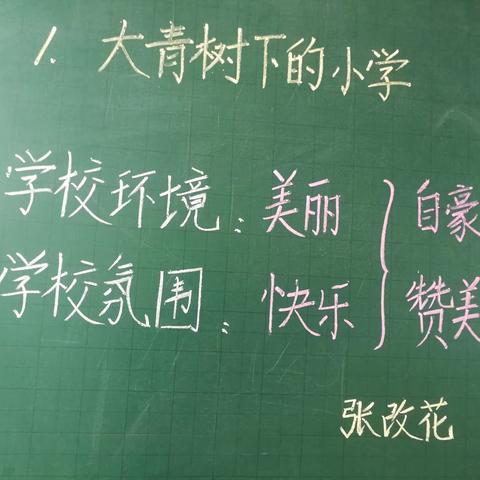 1. 大青树下的小学
学校环境：美丽 } 自豪
学校氛围：快乐 } 赞美
张改花